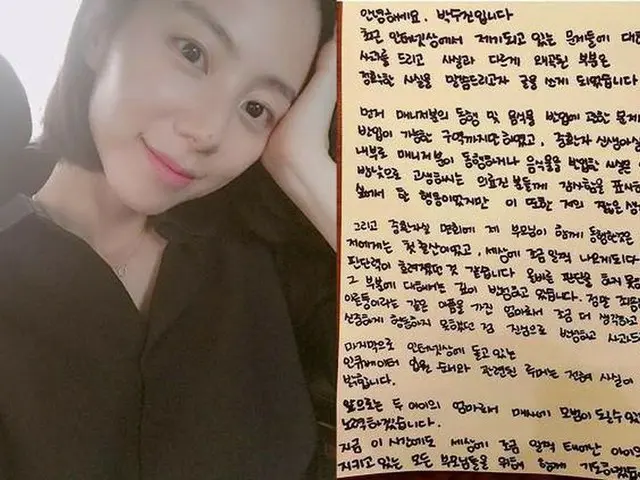 안녕하세요. 박수진입니다
최근 인터넷상에서 제기되고 있는 문제들에 대한
사과를 드리고 사실과 다르게 왜곡된 부분은
정확한 사실을 말씀드리고자 글을 쓰게 되었습니다
먼저 매니저분의 동행 및 음식물 반입에 관한 문제
반입이 가능한 구역까지만 하였고, 중환자 신생아실
내부로 매니저분이 동행하거나 음식물을 반입한 사실은
밤낮으로 고생하시는 의료진 분들께 감사함을 표시
에서 한 행동이었지만 이 또한 저의 짧은
그리고 중환자실 면회에 제 부모님이 함께 동행한것은
저에게는 첫 출산이었고, 세상에 조금 일찍 나오게되다
판단력이 흐려졌던 것 같습니다 올바른 판단을 하지 못
그 부분에 대해서는 깊이 반성하고 있습니다. 정말
이른둥이라는 같은 아픔을 가진 엄마로서 조금 더 생각하고
신중하게 행동하지 못했던 점 진심으로 반성하고 사과드
마지막으로 인터넷상에 돌고 있는
인큐베이터 입원 순서와 관련된 루머는 전혀 사실이
밝힙니다.
앞으로는 두 아이의 엄마로써 매사에 모범이 될수 있
노력하겠습니다.
지금 이 시간에도 세상에 조금 일찍 태어난 아이
지키고 있는 모든 부모님들을 위하여 함께 기도하겠